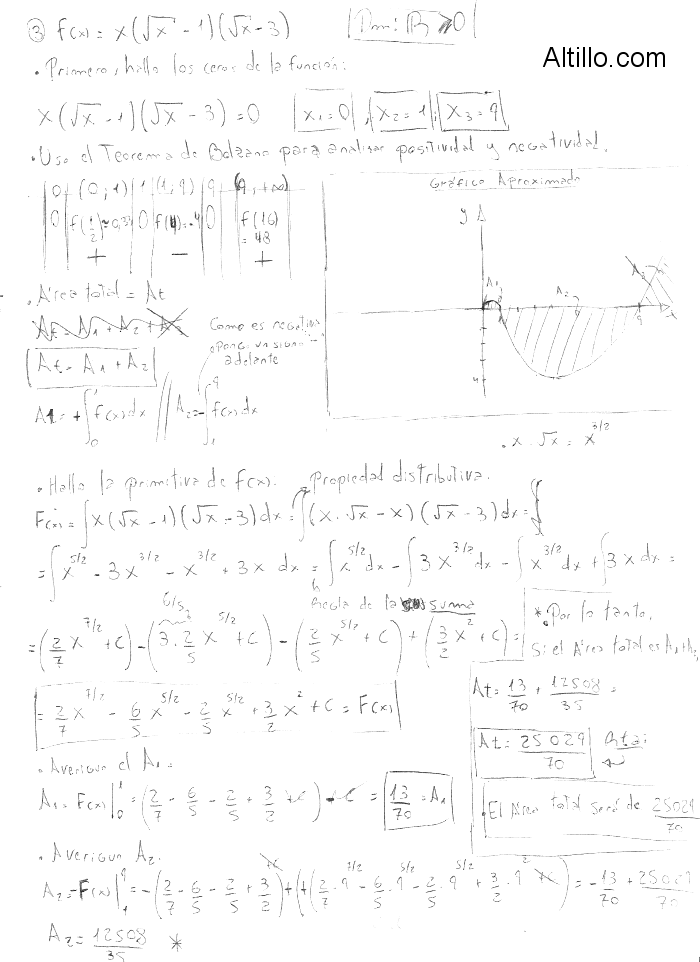 ③ f(x) = x(√x - 1)(√x - 3) | Dom: ℝ ≥ 0 |
Altillo.com
• Primero, hallo los ceros de la función:
x(√x - 1)(√x - 3) = 0 x₁ = 0, x₂ = 1, x₃ = 9
• Uso el Teorema de Bolzano para analizar positividad y negatividad.
0 | (0;1) | 1 | (1,9) | 9 | (9,+∞)
0 | f(1/2) ≈ 0,3 | 0 | f(4) = -4 | 0 | f(16) = 48
+ - +
Gráfico Aproximado
y
A₁ A₂ A₃
9
4
• Área total = At
At = A₁ + A₂ + A₃
At = A₁ + A₂
Como es negativa
pongo un signo "-"
adelante
A1 = +∫₀¹ f(x) dx // A₂ = -∫₁⁹ f(x) dx
• x · √x = x^(3/2)
• Hallo la primitiva de f(x). Propiedad distributiva.
F(x) = ∫ x(√x - 1)(√x - 3) dx = ∫ (x · √x - x)(√x - 3) dx =
= ∫ x^(5/2) - 3x^(3/2) - x^(3/2) + 3x dx = ∫ x^(5/2) dx - ∫ 3x^(3/2) dx - ∫ x^(3/2) dx + ∫ 3x dx =
Regla de la suma
6/5
= (2/7 x^(7/2) + C) - (3 · 2/5 x^(5/2) + C) - (2/5 x^(5/2) + C) + (3/2 x² + C) =
= 2/7 x^(7/2) - 6/5 x^(5/2) - 2/5 x^(5/2) + 3/2 x² + C = F(x)
* Por lo tanto,
Si el Área total es A₁+A₂
At = 13/70 + 12508/35 =
At = 25029/70 Rta:
• El Área total será de 25029/70
• Averiguo el A₁ =
A₁ = F(x)|₀¹ = (2/7 - 6/5 - 2/5 + 3/2 + C) - C = 13/70 = A₁
• Averiguo A₂.
A₂ = -F(x)|₁⁹ = -(2/7 - 6/5 - 2/5 + 3/2 + C) + (+(2/7 · 9^(7/2) - 6/5 · 9^(5/2) - 2/5 · 9^(5/2) + 3/2 · 9² + C) = -13/70 + 25029/70
A₂ = 12508/35 *